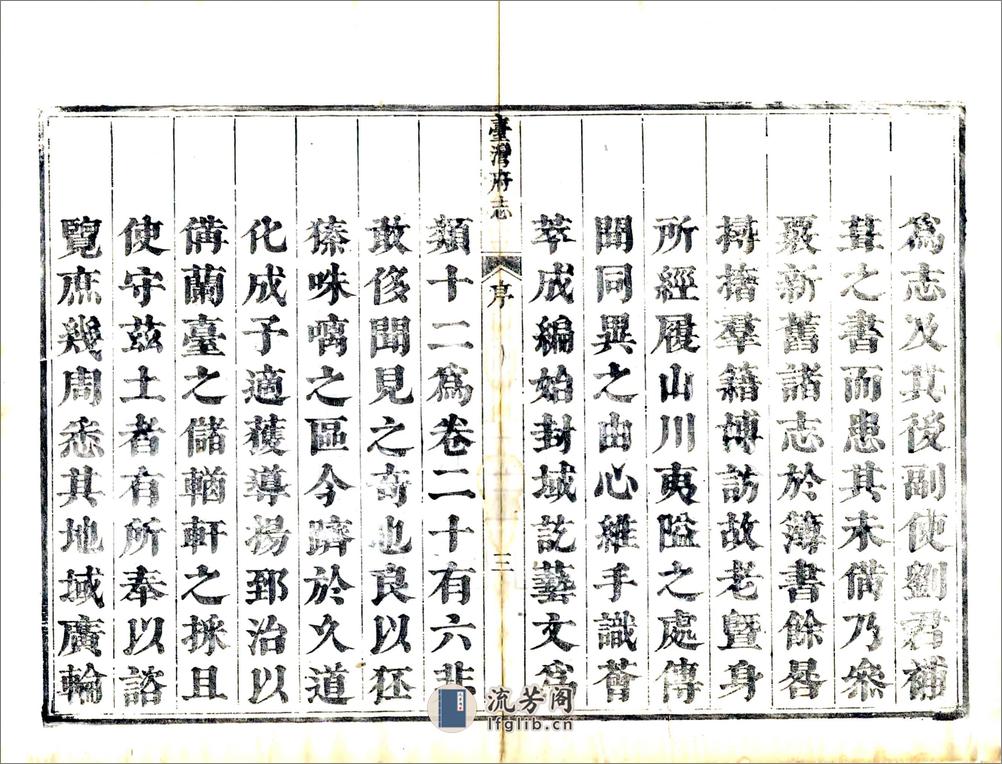 爲志及其後副使劉君補
葺之書而患其未備乃叅
覈新舊諸志於簿書餘晷
摶捨羣籍博訪故老暨身
所經履山川夷隘之處傳
聞同異之由心維手識薈
萃成編始封域訖藝文爲
臺灣府志
序
三
類十二爲卷二十有六非
敢侈聞見之奇也良以狉
獉味𠾱之區今躋於久道
化成予適獲導揚郅治以
備蘭臺之儲輶軒之採且
使守茲土者有所奉以諮
覽庶幾周悉其地域廣輪
流芳阁
lfglib.cn